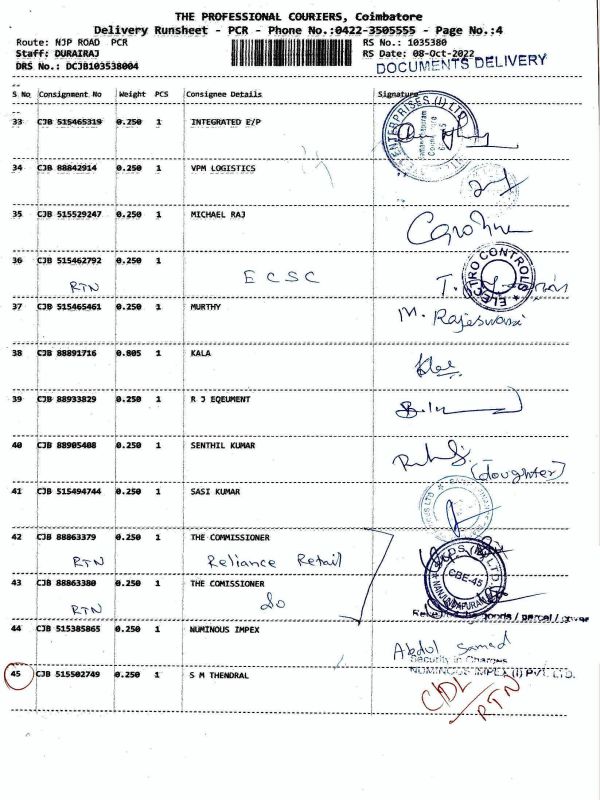 THE PROFESSIONAL COURIERS, Coimbatore
Delivery Runsheet - PCR - Phone No.:0422-3505555 - Page No.:4
Route: NJP ROAD PCR RS No.: 1035380
Staff: DURAIRAJ RS Date: 08-Oct-2022
DRS No.: DCJB103538004 DOCUMENTS DELIVERY
S No Consignment No Weight PCS Consignee Details Signature
33 CJB 515465319 0.250 1 INTEGRATED E/P
ENTERPRISES (I) LTD
34 CJB 88842914 0.250 1 VPM LOGISTICS
35 CJB 515529247 0.250 1 MICHAEL RAJ
36 CJB 515462792 0.250 1
RTN ECSC T.
ELECTRO CONTROLS
37 CJB 515465461 0.250 1 MURTHY M. Rajeswari
38 CJB 88891716 0.805 1 KALA
39 CJB 88933829 0.250 1 R J EQEUMENT
40 CJB 88905408 0.250 1 SENTHIL KUMAR
(doughter)
41 CJB 515494744 0.250 1 SASI KUMAR
42 CJB 88863379 0.250 1 THE COMMISSIONER
RTN Reliance Retail
CBE-45
43 CJB 88863380 0.250 1 THE COMISSIONER
RTN Do
goods / parcel / cover
44 CJB 515385865 0.250 1 NUMINOUS IMPEX
Abdul Samed
Security in Charges
NUMINOUS IMPEX (I) PVT. LTD.
45 CJB 515502749 0.250 1 S M THENDRAL
C/DL
RTN